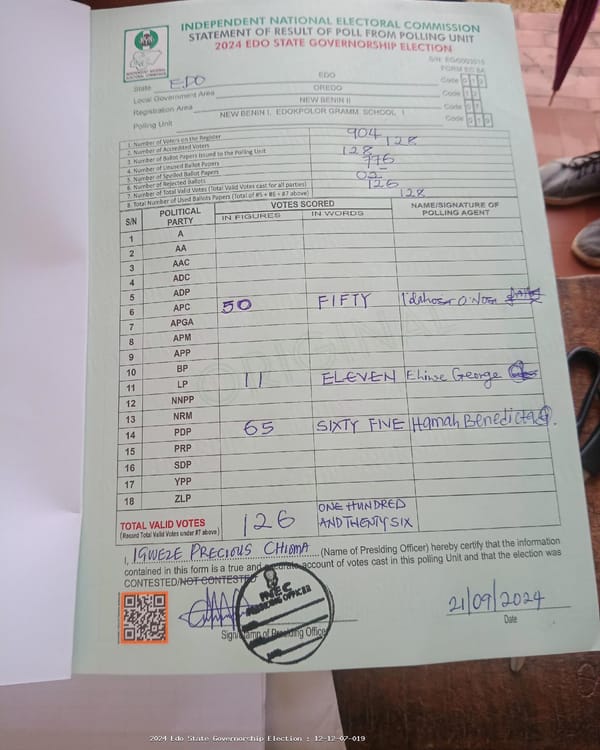 INDEPENDENT NATIONAL ELECTORAL COMMISSION
STATEMENT OF RESULT OF POLL FROM POLLING UNIT
2024 EDO STATE GOVERNORSHIP ELECTION
FORM EC 8A
State EDO EDO Code
Local Government Area OREDO Code
Registration Area NEW BENIN II Code
Polling Unit NEW BENIN I, EDOKPOLOR GRAMM. SCHOOL I Code
1. Number of Voters on the Register 904
2. Number of Accredited Voters 128
3. Number of Ballot Papers Issued to the Polling Unit 128
4. Number of Unused Ballot Papers 776
5. Number of Spoiled Ballot Papers -
6. Number of Rejected Ballots 02
7. Number of Total Valid Votes (Total Valid Votes cast for all parties) 126
8. Total Number of Used Ballots Papers (Total of #5 + #6 + #7 above) 128
S/N POLITICAL PARTY VOTES SCORED NAME/SIGNATURE OF POLLING AGENT
IN FIGURES IN WORDS
1 A
2 AA
3 AAC
4 ADC
5 ADP
6 APC 50 FIFTY
7 APGA
8 APM
9 APP
10 BP
11 LP 11 ELEVEN George
12 NNPP
13 NRM
14 PDP 65 SIXTY FIVE Hamah Benedicta
15 PRP
16 SDP
17 YPP
18 ZLP
TOTAL VALID VOTES 126 ONE HUNDRED AND TWENTY SIX
(Record Total Valid Votes under #7 above)
I, IGWEZE PRECIOUS CHIOMA (Name of Presiding Officer) hereby certify that the information
contained in this form is a true and accurate account of votes cast in this polling Unit and that the election was
CONTESTED/NOT CONTESTED
INEC
PRESIDING OFFICER
Sign/Stamp of Presiding Officer
21/09/2024
Date
2024 Edo State Governorship Election : 12-12-07-019